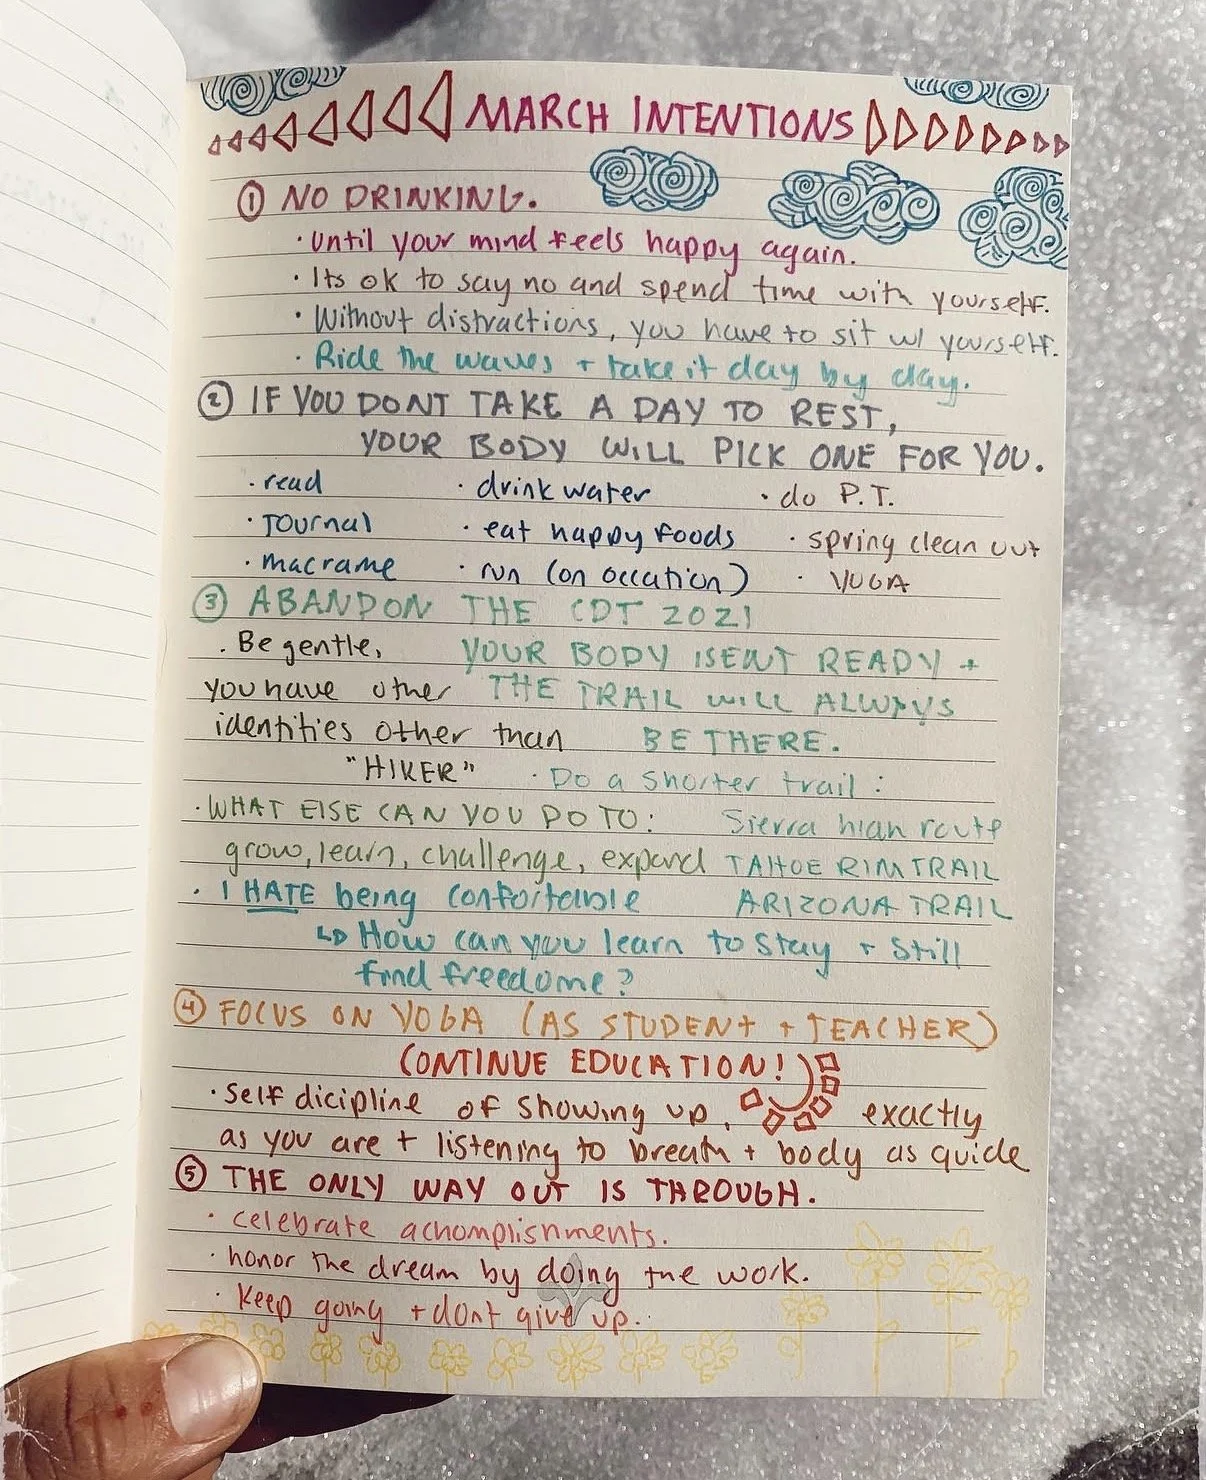 MARCH INTENTIONS
① NO DRINKING.
· Until your mind feels happy again.
· Its ok to say no and spend time with yourself.
· Without distractions, you have to sit w/ yourself.
· Ride the waves + take it day by day.
② IF YOU DONT TAKE A DAY TO REST,
YOUR BODY WILL PICK ONE FOR YOU.
· read · drink water · do P.T.
· Journal · eat happy foods · spring clean out
· macrame · run (on occation) · YOGA
③ ABANDON THE CDT 2021
· Be gentle, YOUR BODY ISENT READY +
you have other THE TRAIL WILL ALWAYS
identities other than BE THERE.
"HIKER" · Do a shorter trail:
· WHAT ELSE CAN YOU DO TO: Sierra high route
grow, learn, challenge, expand TAHOE RIM TRAIL
· I HATE being confortable ARIZONA TRAIL
↳ How can you learn to stay + still
find freedome?
④ FOCUS ON YOGA (AS STUDENT + TEACHER)
CONTINUE EDUCATION!
· Self dicipline of showing up, exactly
as you are + listening to breath + body as guide
⑤ THE ONLY WAY OUT IS THROUGH.
· celebrate achomplishments.
· honor the dream by doing the work.
· Keep going + dont give up.